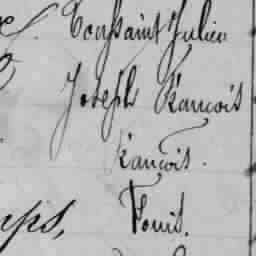 Toussaint Julien
Joseph François
François.
Louis.